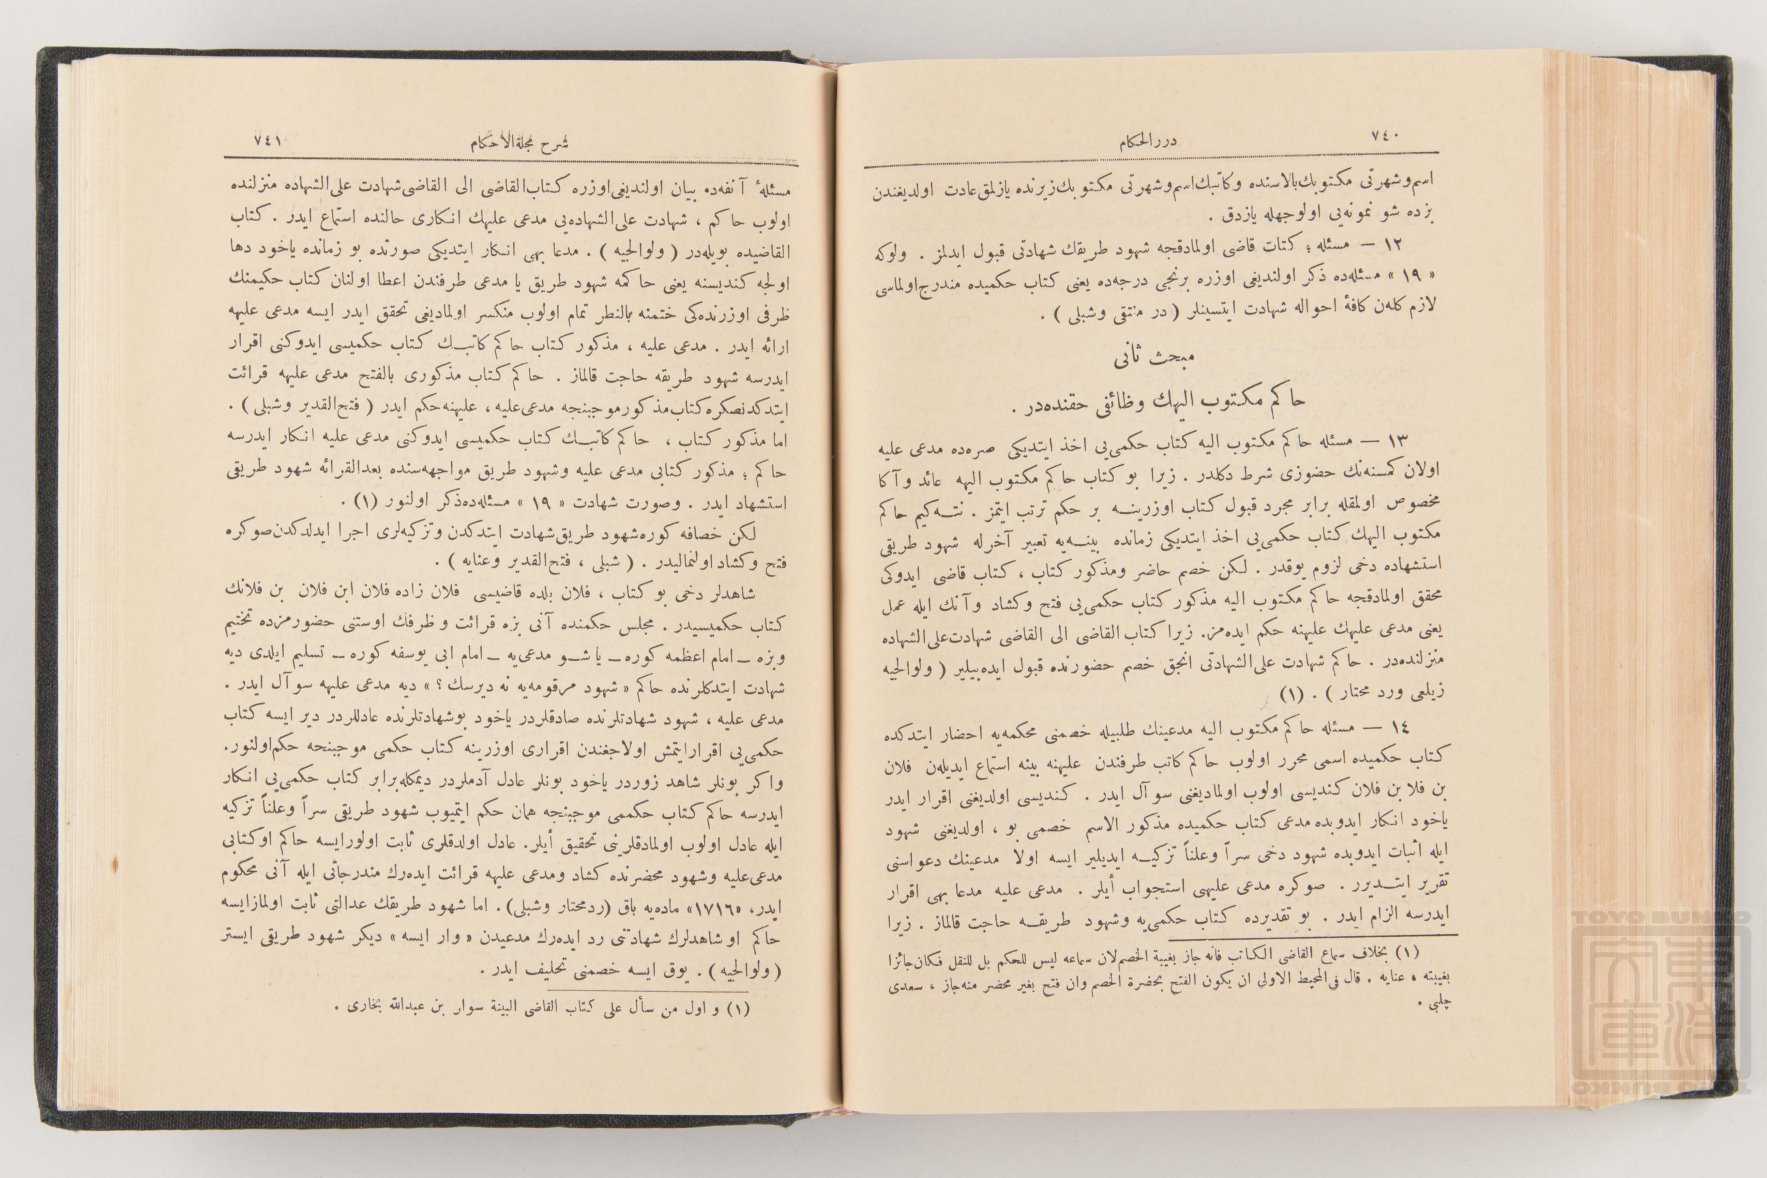 ٧٤٠
درر الحكام
اسم و شهرتی مكتوبك بالاسنده و كاتبك اسم و شهرتی مكتوبك زیرنده یازلمق عادت اولدیغندن
بزده شو نمونه‌یی اولوجهله یازدق .
١٢ — مسئله ؛ كتات قاضی اولمادقجه شهود طریقك شهادتی قبول ایدلمز . ولوكه
« ١٩ » مسئله‌ده ذكر اولندیغی اوزره برنجی درجه‌ده یعنی كتاب حكمیده مندرج اولماسی
لازم كله‌ن كافهٔ احواله شهادت ایتسینلر ( در منتقی وشبلی ) .
مبحث ثانی
حاكم مكتوب الیهك وظائفی حقنده‌در .
١٣ — مسئله حاكم مكتوب الیه كتاب حكمی‌یی اخذ ایتدیكی صره‌ده مدعی علیه
اولان كمسنه‌نك حضوری شرط دكلدر . زیرا بو كتاب حاكم مكتوب الیهه عائد و آكا
مخصوص اولمقله برابر مجرد قبول كتاب اوزرینه بر حكم ترتب ایتمز . نته‌كیم حاكم
مكتوب الیهك كتاب حكمی‌یی اخذ ایتدیكی زمانده بینه‌یه تعبیر آخرله شهود طریقی
استشهاده دخی لزوم یوقدر . لكن خصم حاضر ومذكور كتاب ، كتاب قاضی ایدوكی
محقق اولمادقجه حاكم مكتوب الیه مذكور كتاب حكمی‌یی فتح و كشاد و آنك ایله عمل
یعنی مدعی علیهك علیهنه حكم ایده‌مز. زیرا كتاب القاضی الی القاضی شهادت علی الشهاده
منزلنده‌در . حاكم شهادت علی الشهادتی انجق خصم حضورنده قبول ایده‌بیلیر ( ولوالجیه
زیلعی ورد محتار ) . (١)
١٤ — مسئله حاكم مكتوب الیه مدعینك طلبیله خصمنی محكمه‌یه احضار ایتدكده
كتاب حكمیده اسمی محرر اولوب حاكم كاتب طرفندن علیهنه بینه استماع ایدیله‌ن فلان
بن فلا بن فلان كندیسی اولوب اولمادیغنی سوآل ایدر . كندیسی اولدیغنی اقرار ایدر
یاخود انكار ایدوبده مدعی كتاب حكمیده مذكور الاسم خصمی بو ، اولدیغنی شهود
ایله اثبات ایدوبده شهود دخی سراً وعلناً تزكیه ایدیلیر ایسه اولا مدعینك دعواسنی
تقریر ایتدیرر . صوكره مدعی علیهی استجواب أیلر . مدعی علیه مدعا بهی اقرار
ایدرسه الزام ایدر . بو تقدیرده كتاب حكمی‌یه وشهود طریقه حاجت قالماز . زیرا
(١) بخلاف سماع القاضی الكاتب فانه جاز بغیبة الخصم لان سماعه لیس للحكم بل للنقل فكان جائزا
بغیبته ، عنایه . قال فی المحیط الاولی ان یكون الفتح بحضرة الخصم وان فتح بغیر محضر منه جاز ، سعدی
چلبی .
٧٤١
شرح مجلة الاحكام
مسئلهٔ آنفه‌ده بیان اولندیغی اوزره كتاب القاضی الی القاضی شهادت علی الشهاده منزلنده
اولوب حاكم ، شهادت علی الشهاده‌یی مدعی علیهك انكاری حالنده استماع ایدر . كتاب
القاضیده بویله‌در ( ولوالجیه ) . مدعا بهی انكار ایتدیكی صورتده بو زمانده یاخود دها
اولجه كندیسنه یعنی حاكمه شهود طریق یا مدعی طرفندن اعطا اولنان كتاب حكیمنك
ظرفی اوزرنده‌كی ختمنه بالنظر تمام اولوب منكسر اولمادیغی تحقق ایدر ایسه مدعی علیهه
ارائه ایدر . مدعی علیه ، مذكور كتاب حاكم كاتبك كتاب حكمیسی ایدوكنی اقرار
ایدرسه شهود طریقه حاجت قالماز . حاكم كتاب مذكوری بالفتح مدعی علیهه قرائت
ایتدكدنصكره كتاب مذكور موجبنجه مدعی علیه ، علیهنه حكم ایدر ( فتح القدیر وشبلی ) .
اما مذكور كتاب ، حاكم كاتبك كتاب حكمیسی ایدوكنی مدعی علیه انكار ایدرسه
حاكم ؛ مذكور كتابی مدعی علیه وشهود طریق مواجهه‌سنده بعد القرائه شهود طریقی
استشهاد ایدر . وصورت شهادت « ١٩ » مسئله‌ده ذكر اولنور (١) .
لكن خصافه كوره شهود طریق شهادت ایتدكدن وتزكیه‌لری اجرا ایدلدكدن صوكره
فتح وكشاد اولنمالیدر . ( شبلی ، فتح القدیر وعنایه ) .
شاهدلر دخی بو كتاب ، فلان بلده قاضیسی فلان زاده فلان ابن فلان بن فلانك
كتاب حكمیسیدر . مجلس حكمنده آنی بزه قرائت و ظرفك اوستنی حضورمزده تختیم
وبزه — امام اعظمه كوره — یا شو مدعی‌یه — امام ابی یوسفه كوره — تسلیم ایلدی دیه
شهادت ایتدكلرنده حاكم « شهود مرقومه‌یه نه دیرسك ؟ » دیه مدعی علیهه سوآل ایدر .
مدعی علیه ، شهود شهادتلرنده صادقلردر یاخود بوشهادتلرنده عادللردر دیر ایسه كتاب
حكمی‌یی اقرار ایتمش اولاجغندن اقراری اوزرینه كتاب حكمی موجبنجه حكم اولنور.
واكر بونلر شاهد زوردر یاخود بونلر عادل آدملردر دیمكله برابر كتاب حكمی‌یی انكار
ایدرسه حاكم كتاب حكممی موجبنجه همان حكم ایتمیوب شهود طریقی سراً وعلناً تزكیه
ایله عادل اولوب اولمادقلرینی تحقیق أیلر. عادل اولدقلری ثابت اولورایسه حاكم اوكتابی
مدعی علیه وشهود محضرنده كشاد ومدعی علیهه قرائت ایده‌رك مندرجاتی ایله آنی محكوم
ایدر، «١٧١٦» ماده‌یه باق (ردمحتار وشبلی) . اما شهود طریقك عدالتی ثابت اولمازایسه
حاكم او شاهدلرك شهادتنی رد ایده‌رك مدعیدن « وار ایسه » دیكر شهود طریقی ایستر
( ولوالجیه ) . یوق ایسه خصمنی تحلیف ایدر .
(١) و اول من سأل علی كتاب القاضی البینة سوار بن عبدالله بخاری .
TOYO BUNKO
東洋文庫
TOYO BUNKO